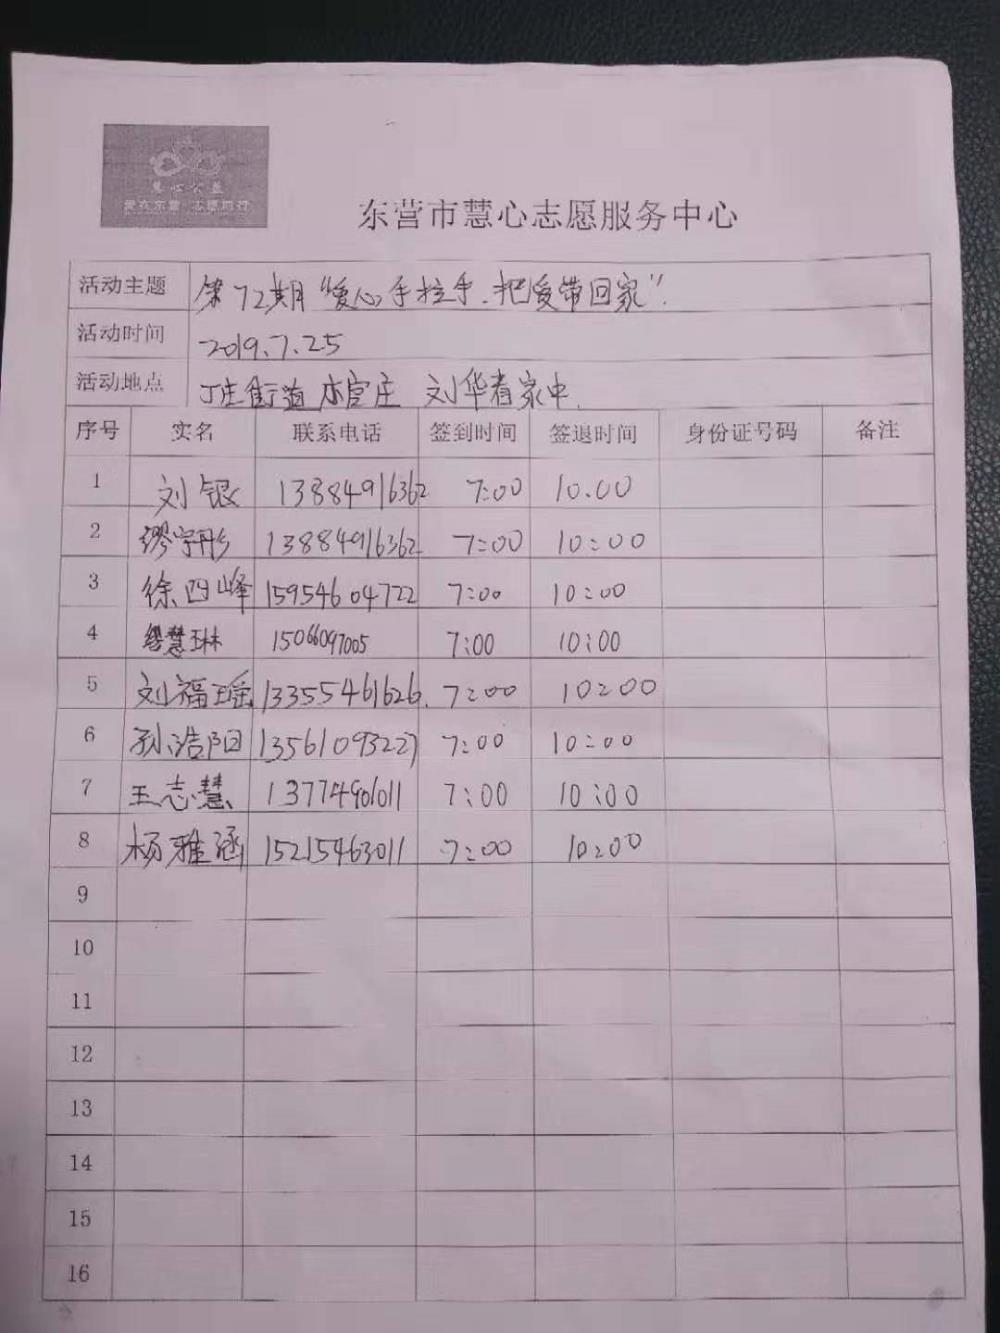 慧心公益
爱在东营 志愿同行
东营市慧心志愿服务中心
活动主题 第72期“爱心手拉手.把爱带回家”.
活动时间 2019.7.25
活动地点 丁庄街道 李官庄 刘华春家中.
序号 实名 联系电话 签到时间 签退时间 身份证号码 备注
1 刘银 13884916362 7:00 10.00
2 缪宇彤 13884916362 7:00 10:00
3 徐四峰 15954604722 7:00 10:00
4 缪慧琳 15066097005 7:00 10:00
5 刘福瑶 13355461626. 7:00 10:00
6 孙浩阳 13561093227 7:00 10:00
7 王志慧 13774906011 7:00 10:00
8 杨雅涵 15215463011 7:00 10:00
9
10
11
12
13
14
15
16